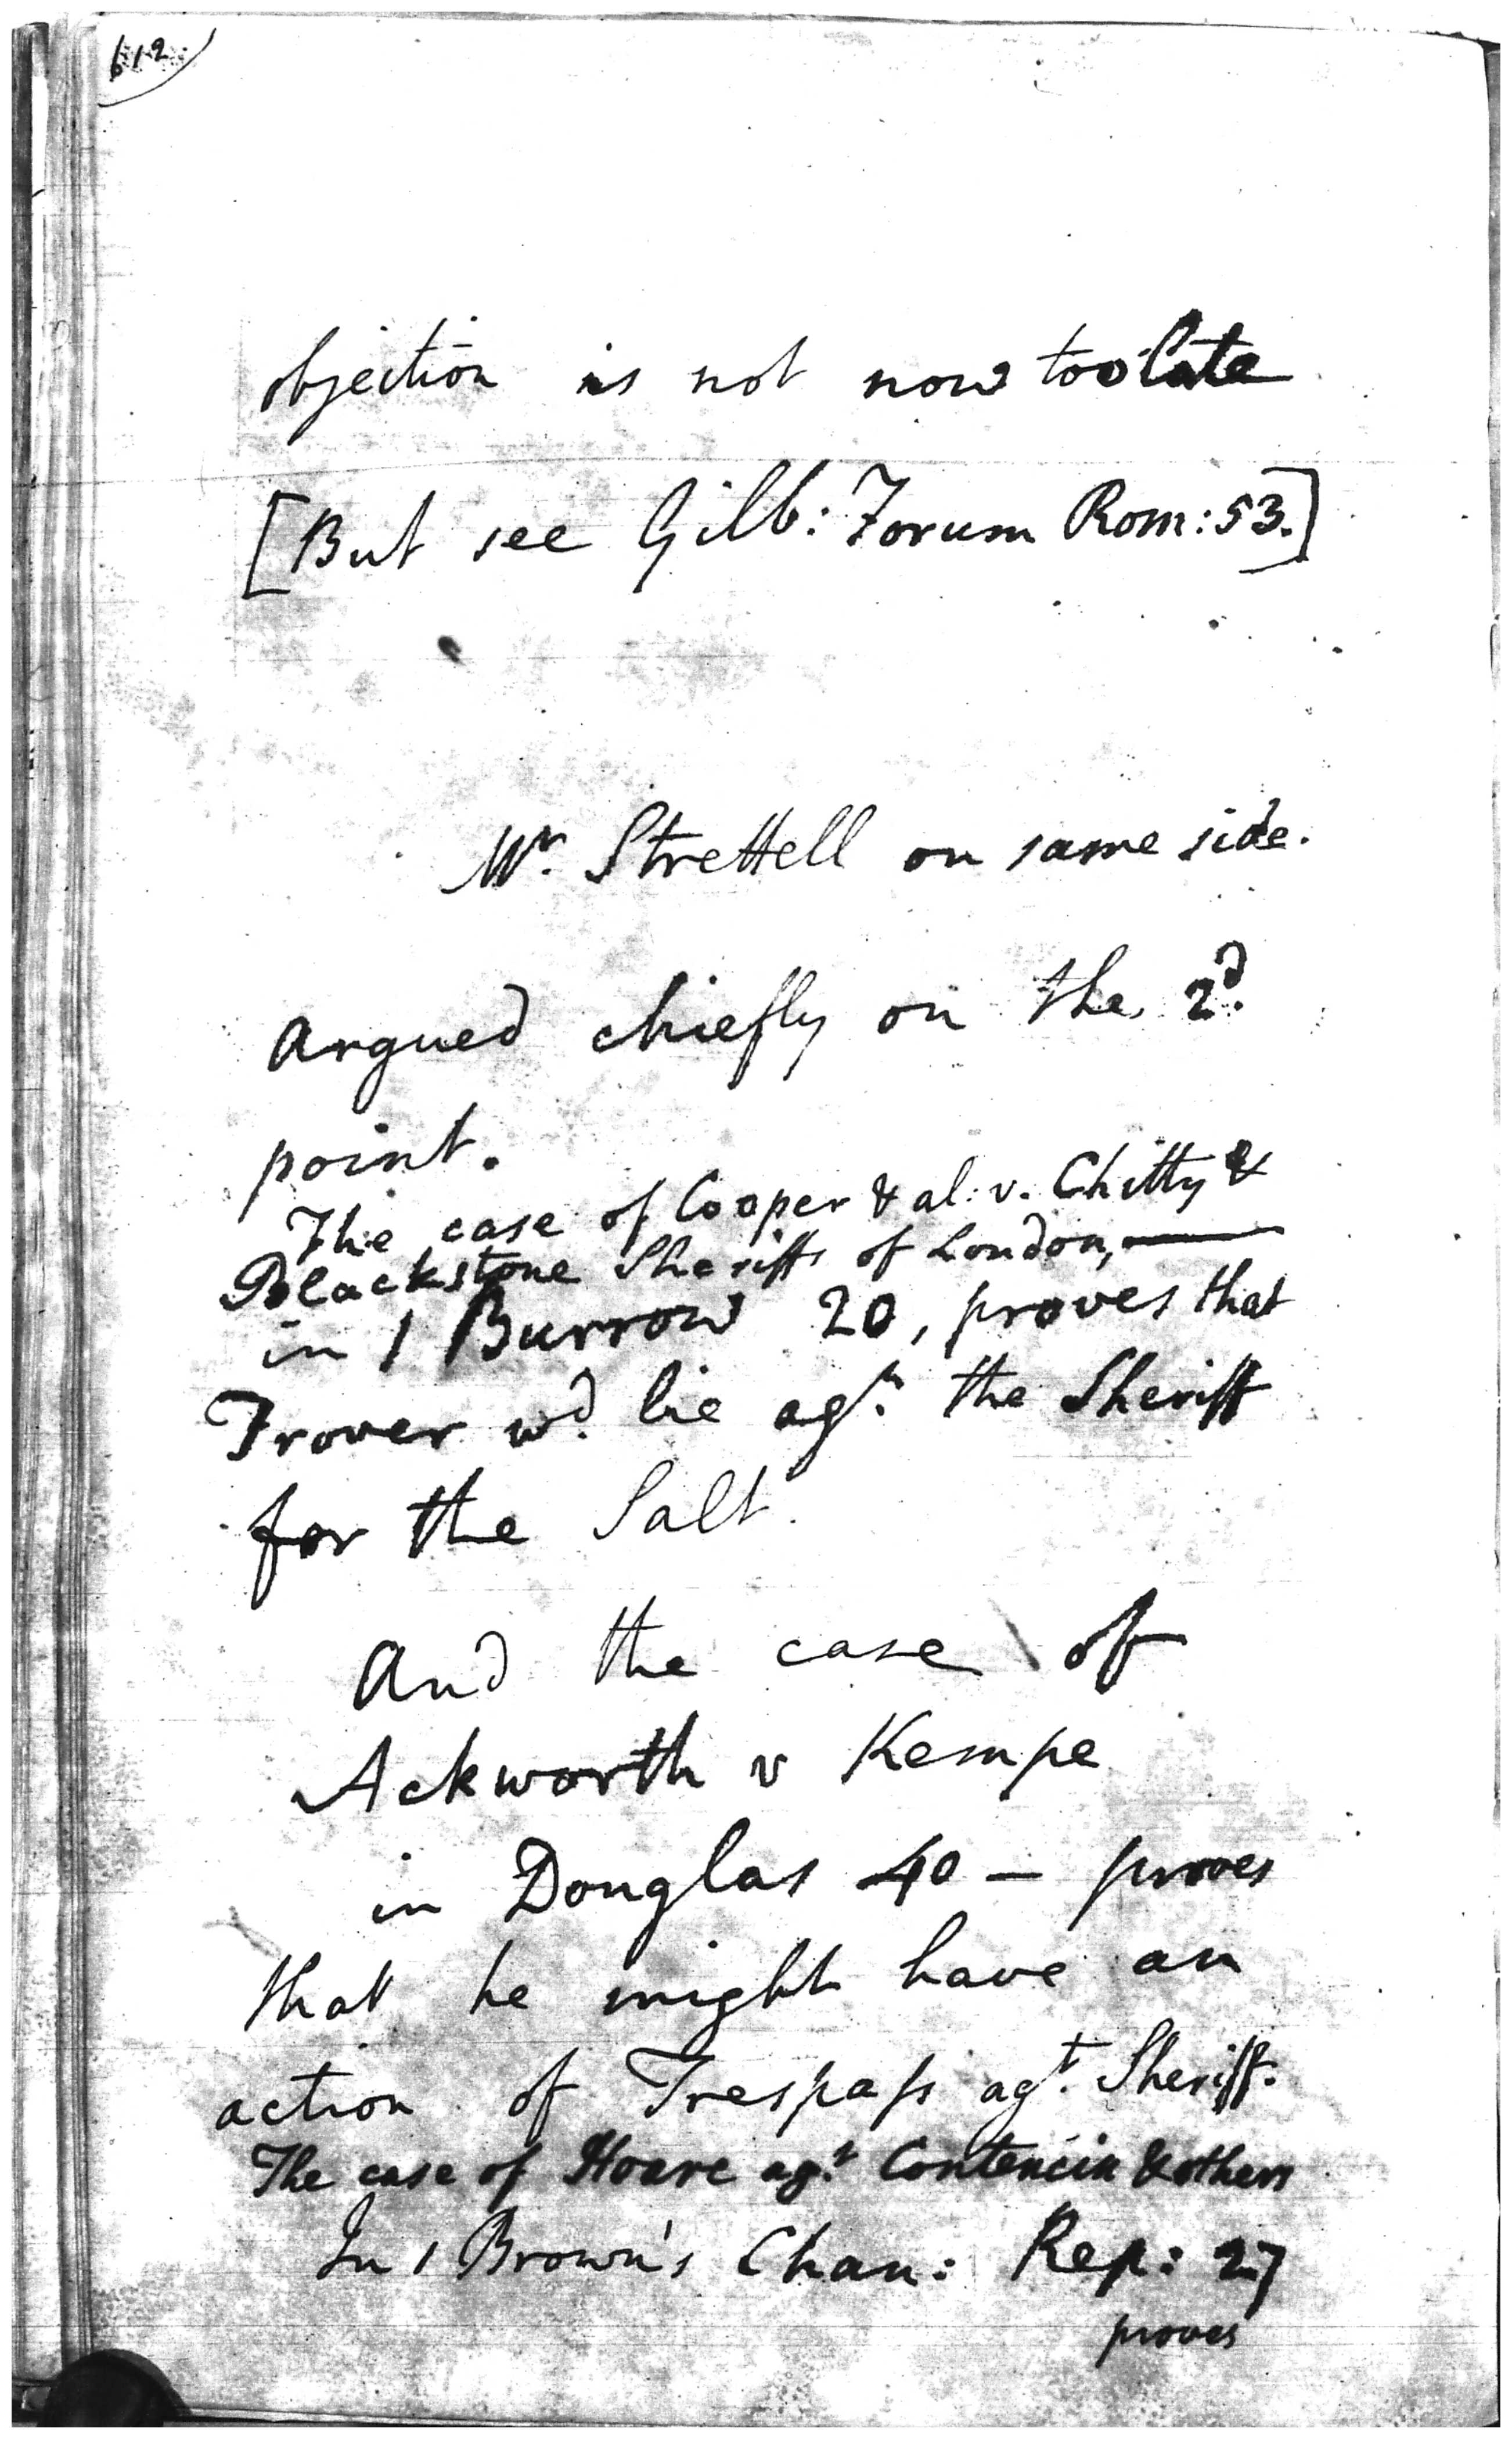 612
objection is not now too late
[But see Gilb: Forum Rom: 53.]
Mr. Strettell on same side.
Argued chiefly on the 2d.
point.
The case of Cooper & al: v. Chitty &
Blackstone Sheriffs of London,—
in 1 Burrow 20, proves that
Trover wd. lie agt. the Sheriff
for the Salt.
And the case of
Ackworth v Kempe
in Douglas 40 — proves
that he might have an
action of Trespass agt. Sheriff.
The case of Hoare agt. Contencin & others
In 1 Brown's Chan: Rep: 27
proves